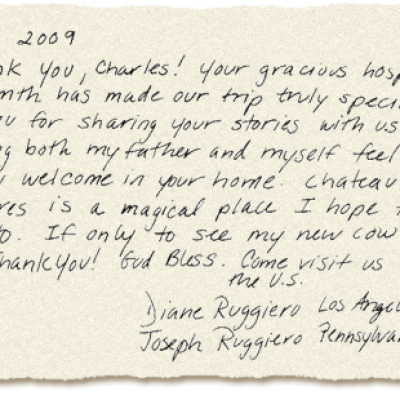 2009
nk you, Charles! Your gracious hosp
mth has made our trip truly speci
ou for sharing your stories with us
g both my father and myself feel
y welcome in your home. Chateau
res is a magical place I hope t
to. If only to see my new cow
Thank You! God Bless. Come visit us
the U.S.
Diane Ruggiero Los Angel
Joseph Ruggiero Pennsylvan